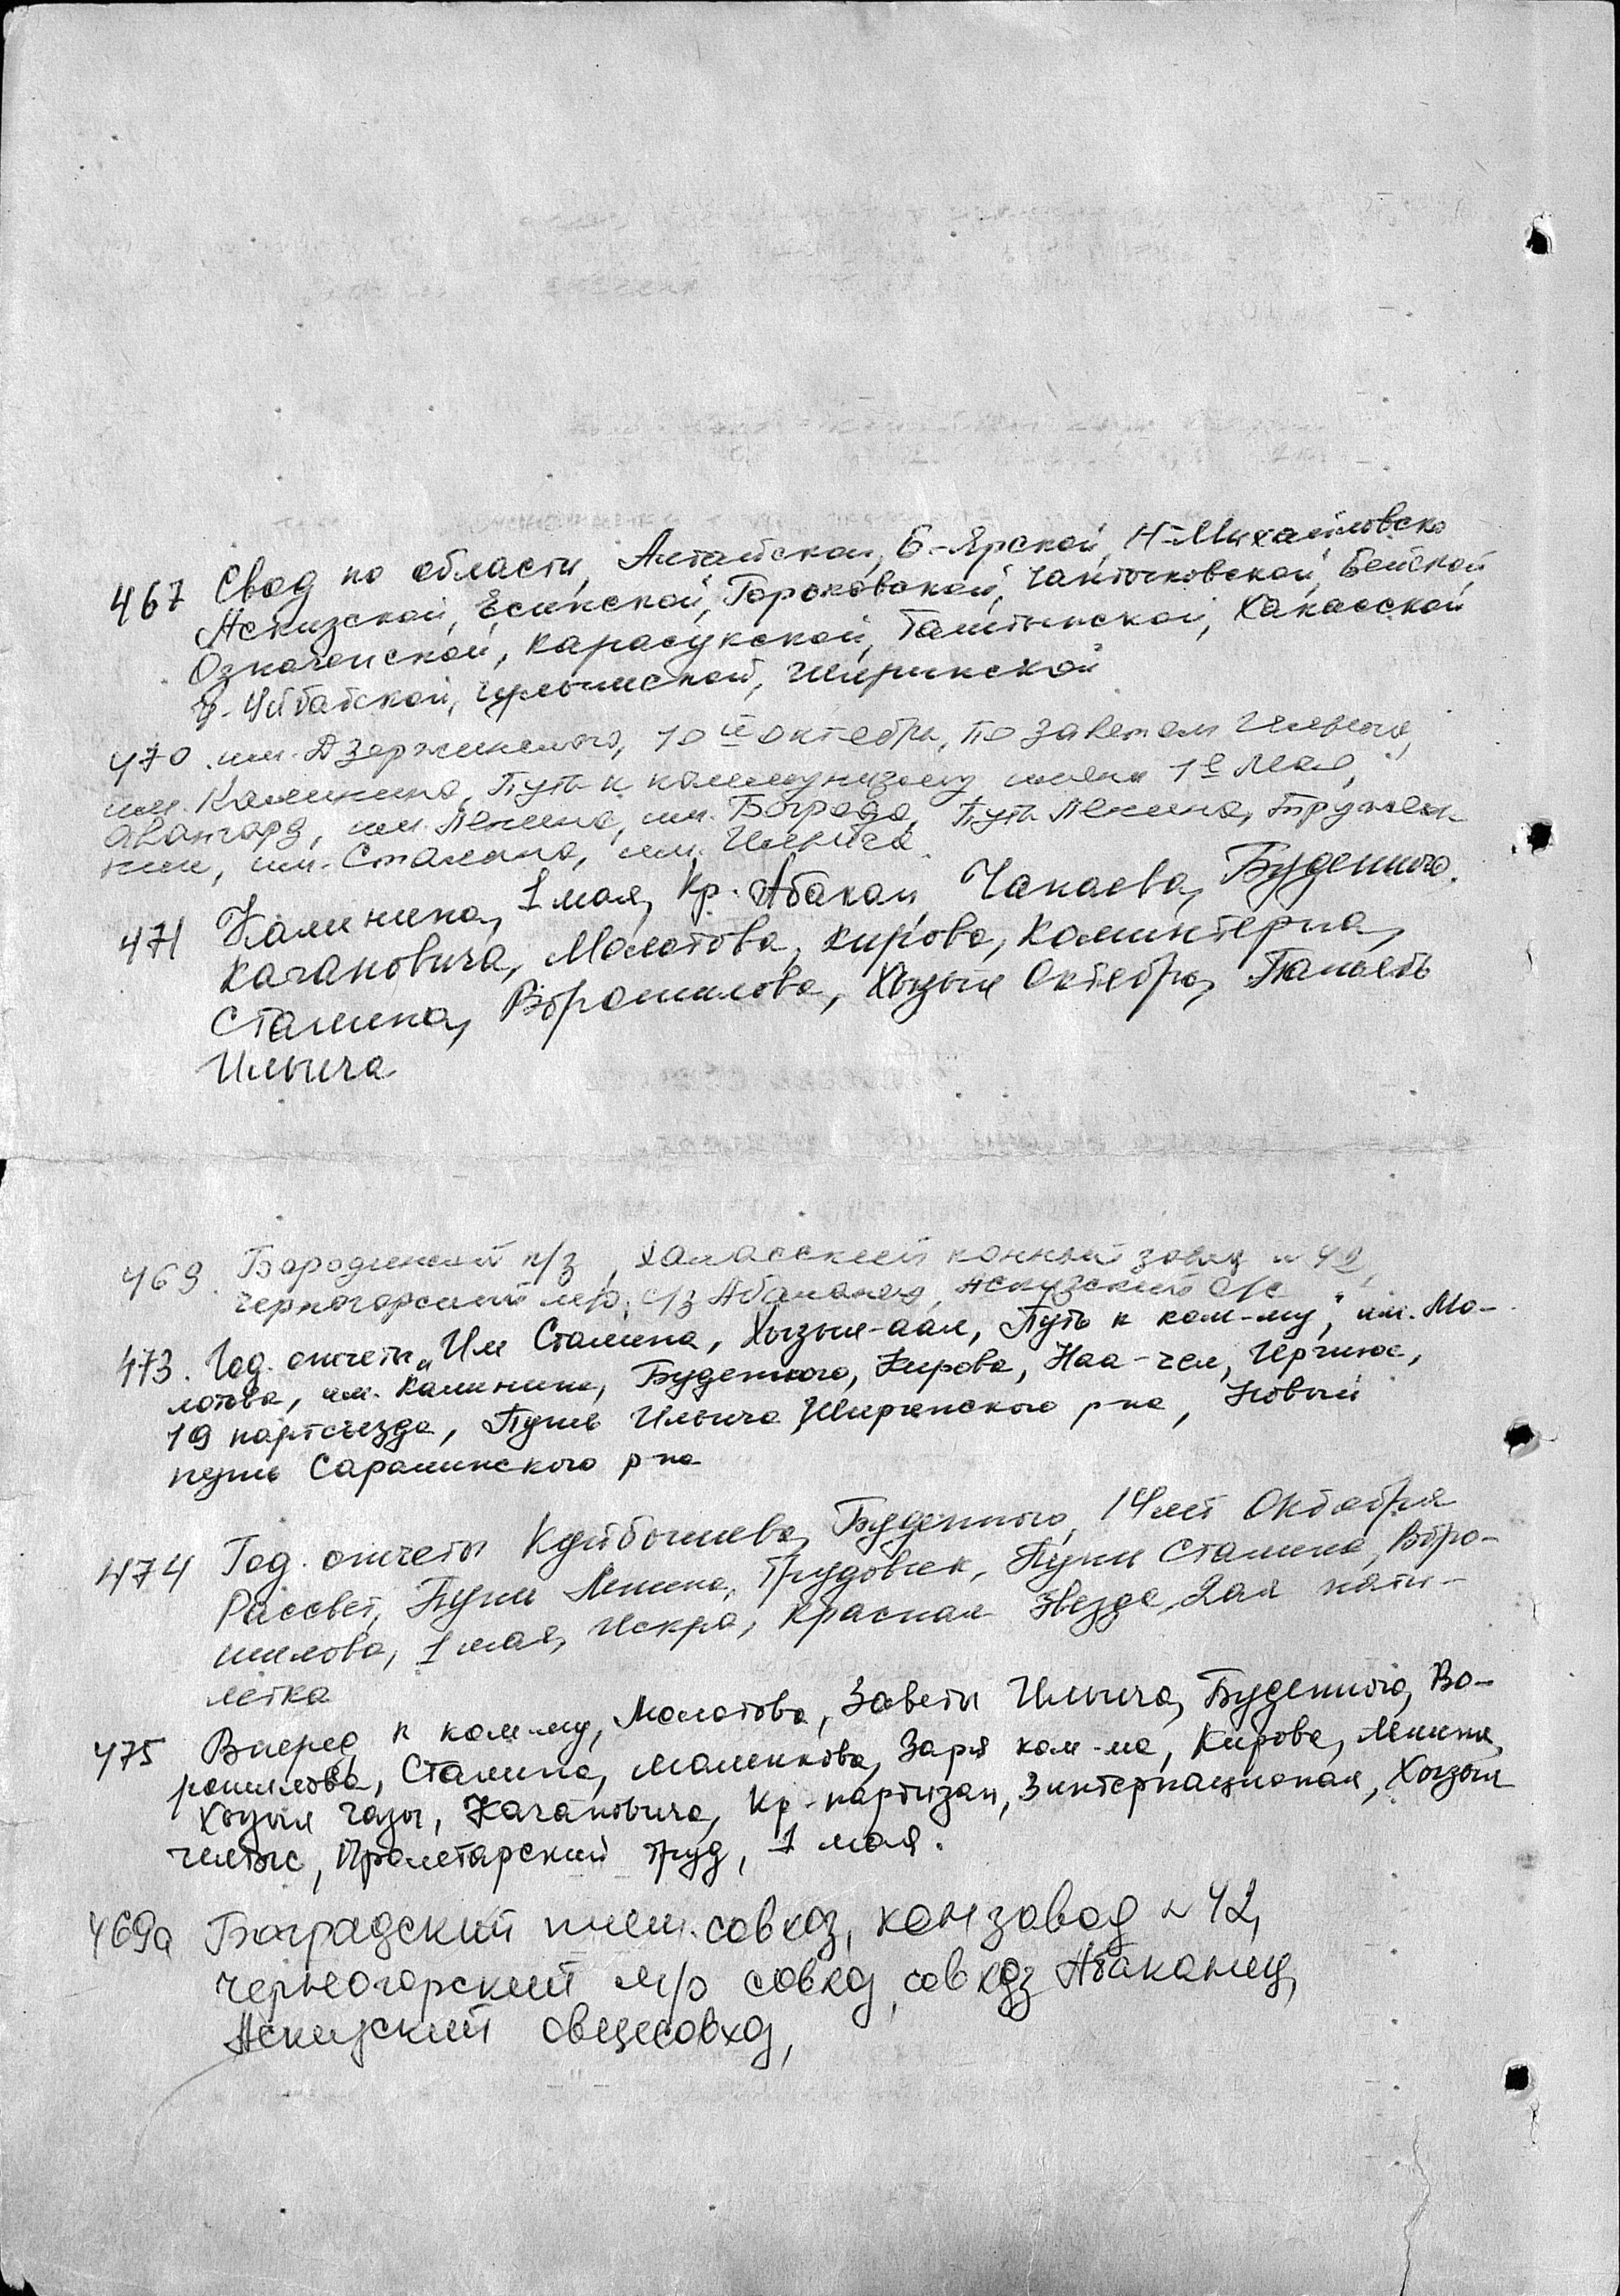 467 Свод по области, Алтайской, Б-Ярской, Н-Михайловско
Аскизской, Есинской, Горьковской, Чаптыковской, Бейской,
Означенской, Карасукской, Таштыпской, Хакасской
У-Уйбатской, Чулымской, Ширинской
470. им. Дзержинского, 10ый октябрь, По заветам Ильича,
им. Калинина, Путь к коммунизму, имени 1е Мая,
Авангард, им. Ленина, им. Бограда, Путь Ленина, Тружен-
ник, им. Сталина, им. Ильича.
471 Калинина, 1 мая, Кр. Абакан, Чапаева, Буденного.
Кагановича, Молотова, Кирова, Коминтерна,
Сталина, Ворошилова, Хызыл Октябрь, Память
Ильича
469. Бородинский п/з, Хакасский конный завод № 42,
Черногорский м/р, с/з Абаканец, Аскизский о/с
473. Год. отчеты „Им Сталина, Хызыл-аал, Путь к ком-му", им. Мо-
лотова, им. Калинина, Буденного, Кирова, Наа-чел, Чергилос,
19 партсъезда, Путь Ильича Ширинского р-на, Новый
путь Саралинского р-на
474 Год. отчеты Куйбышева, Буденного, 14 лет Октября
Рассвет, Пути Ленина, Трудовик, Пути Сталина, Воро-
шилова, 1 мая, Искра, Красная Звезда, 2ая пяти-
летка
475 Вперед к ком-му, Молотова, Заветы Ильича, Буденного, Во-
рошилова, Сталина, Маленкова, Заря ком-ма, Кирова, Ленина,
Хызыл Чазы, Кагановича, Кр-партизан, 3 интернационал, Хызыл
челтыс, Пролетарский труд, 1 мая.
469а Боградский плем. совхоз, конзавод № 42,
Черногорский м/р совхоз, совхоз Абаканец,
Аскизский овцесовхоз,